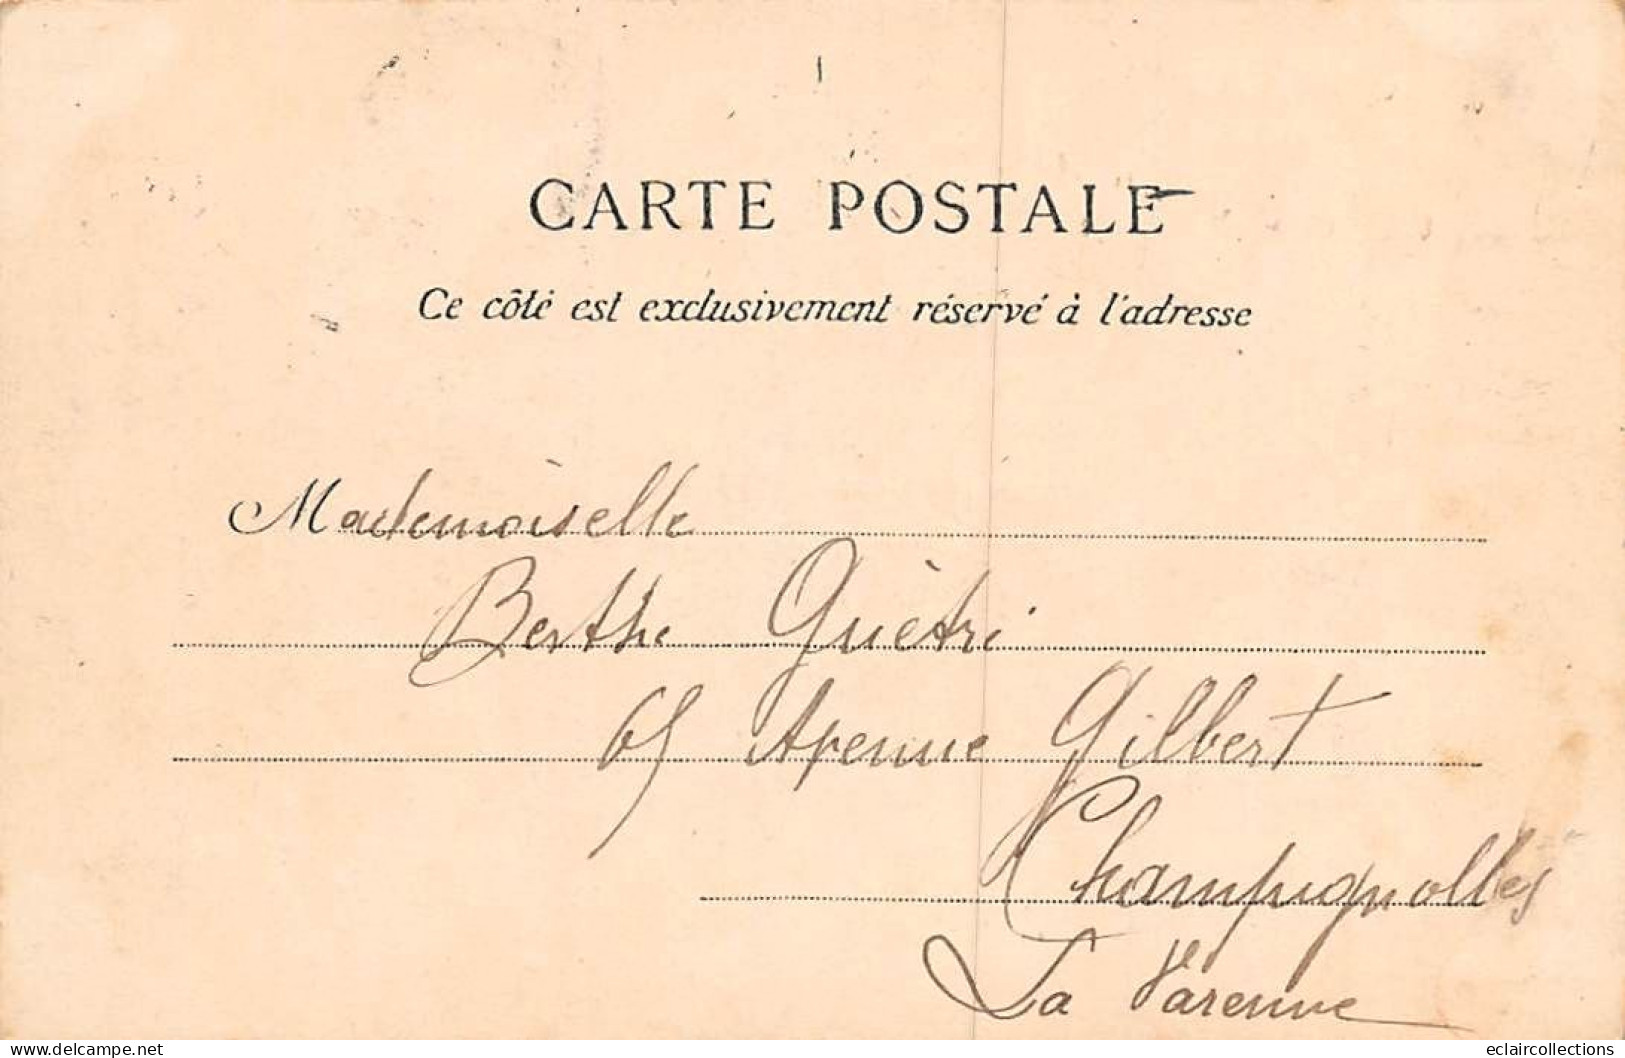 CARTE POSTALE
Ce côté est exclusivement réservé à l'adresse
Mademoiselle
Berthe Guètri
65 Avenue Gilbert
Champignolles
La Varenne
delcampe.net
eclaircollections